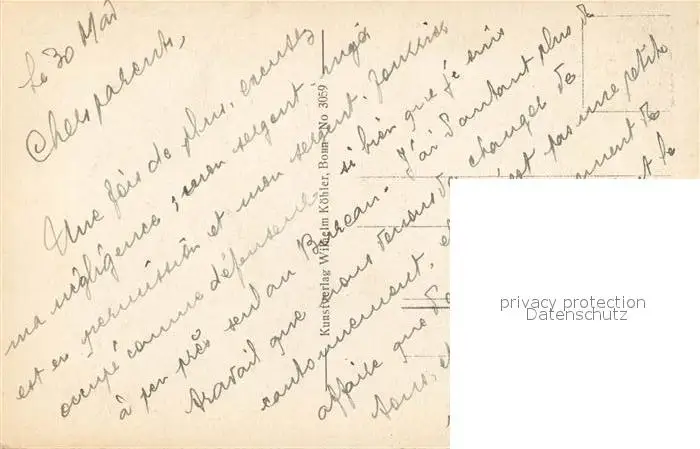 Le 30 Mai
Chers parents,
Une fois de plus, excusez
ma négligence; mon sergent major
est en permission et mon sergent fourrier
occupé comme défenseur si bien que je suis
à peu près seul au Bureau. J'ai d'autant plus de
travail que nous venons de changer de
cantonnement, et est pas une petite
affaire que de nement de
tous, et et le
Kunstverlag Wilhelm Köhler, Bonn No 3059
privacy protection
Datenschutz